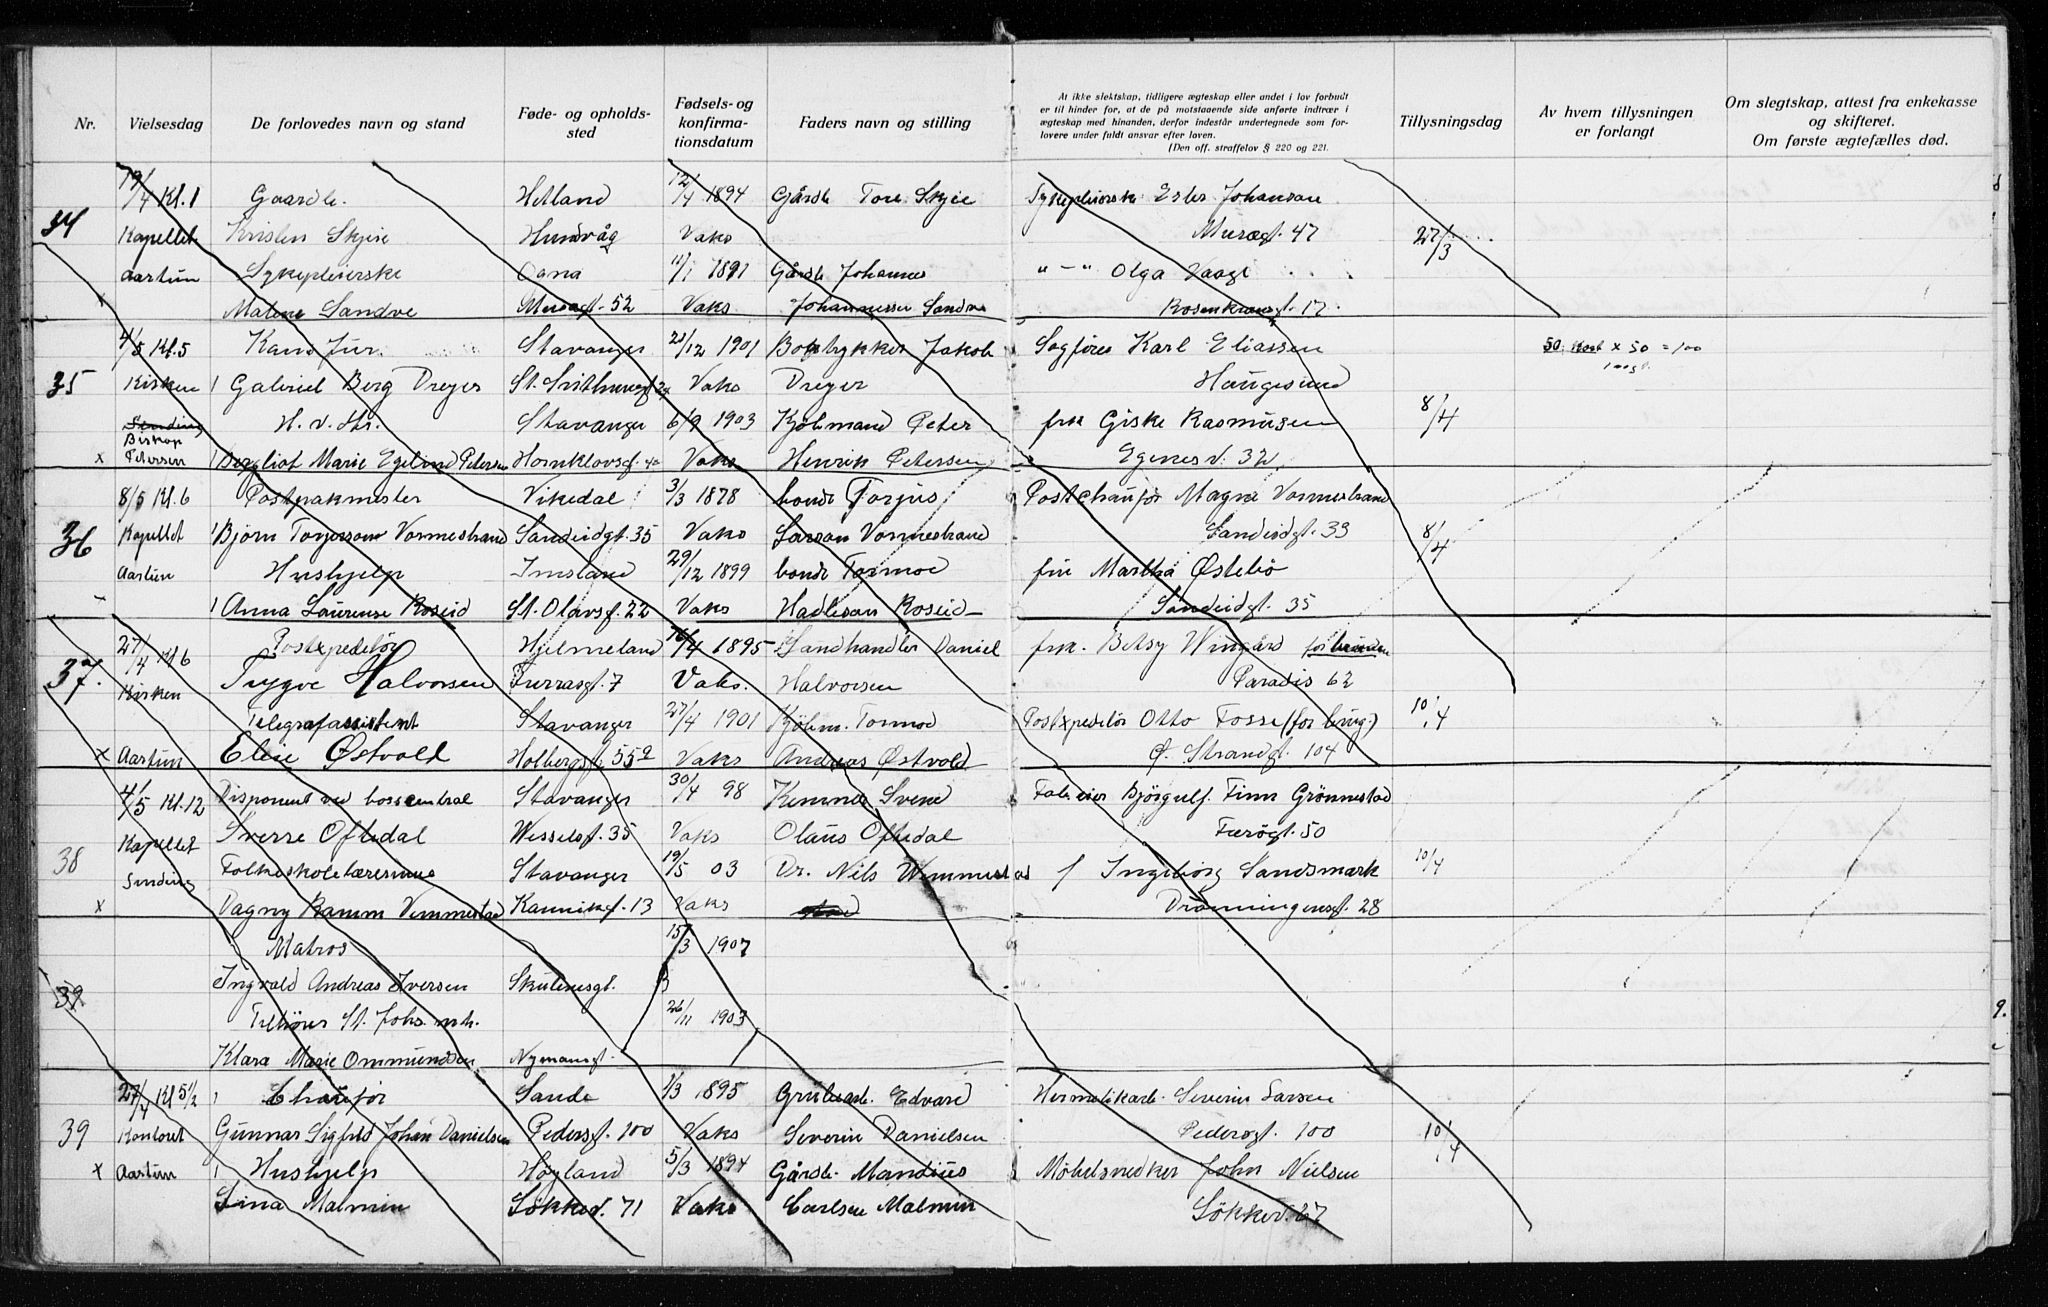 Nr.
Vielsesdag
De forlovedes navn og stand
Føde- og opholds-
sted
Fødsels- og
konfirma-
tionsdatum
Faders navn og stilling
At ikke slektskap, tidligere ægteskap eller andet i lov forbudt
er til hinder for, at de på motstaaende side anførte indtrær i
ægteskap med hinanden, derfor indestår undertegnede som for-
lovere under fuldt ansvar efter loven.
(Den off. straffelov § 220 og 221.
Tillysningsdag
Av hvem tillysningen
er forlangt
Om slegtskap, attest fra enkekasse
og skifteret.
Om første ægtefælles død.
19/4 Kl. 1 Gaardb. Hetland 12/4 1894 Gårdb. Tore Skjie Sykepleierske Ester Johansen
34 Kapellet Kristen Skjie Hundvåg Vaks Muségt. 47 27/3
Aastun Sykepleierske Oana 11/1 1891 Gårdb. Johannes " — " Olga Vaage
x Malene Sandve Muségt. 52 Vaks Johannessen Sandve Rosenkransgt. 17
4/5 Kl. 5 Kand. jur. Stavanger 21/12 1901 Boktrykker Jakob Sagfører Karl Eliassen 50 x 50 = 100
35 Kirken Gabriel Berg Dreyer St. Svithunsgt. Vaks Dreyer Haugesund
H. v. str. Stavanger 6/9 1903 Kjøbmand Peter frk Giske Rasmussen 8/4
Biskop
x Petersen Bergliot Marie Egelind Petersen Hornklovsgt. Vaks Henrik Petersen Egenesv. 32
8/5 Kl. 6 Postpakmester Vikedal 3/3 1878 bonde Torjus Postchauför Magne Vormestrand
36 Kapellet Bjørn Torjersson Vormestrand Sandeidgt. 35 Vaks Larsson Vormestrand Sandeidgt. 33 8/4
Aastun Hushjelp Imsland 29/12 1899 bonde Tormod fru Martha Østebø
Anna Laurense Roseid St. Olavsgt. 22 Vaks Hadlesen Roseid Sandeidgt. 35
27/4 Kl 6 Postexpeditör Hjelmeland 16/4 1895 Landhandler Daniel frk. Betsy Wingård for bruden
37. Kirken Trygve Halvorsen Jurrasgt. 7 Vaks. Halvorsen Paradis 62
Telegrafassistent Stavanger 27/4 1901 Kjöbm. Tormod Postexpeditör Otto Fosse (for brug.) 10/4
x Aastun Elise Østvold Holbergsgt. 55a Vaks Andreas Østvold Ø. Strandgt. 104
4/5 Kl. 12 Disponent ved bosscentral Stavanger 30/4 98 Kemner Svend Fabreier Bjørgulf Finn Grönnestad
38 Kapellet Sverre Oftedal Wesselsgt. 35 Vaks Olaus Oftedal Færögt. 50
Sinding Folkeskolelærerinne Stavanger 19/5 03 Dr. Nils Wimmestad f Ingeborg Sandsmark 10/4
x Dagny Ramm Vemmestad Kannikgt. 13 Vaks Dronningensgt. 28
Matros 15/3 1907
39 Ingvald Andreas Iversen Skutenesgt.
Tilhörer St. Johs. mh. 26/11 1903
Klara Marie Ommundsen Nymansgt.
27/4 Kl 5½ Chauför Sande 1/3 1895 Grubearb. Edvard Hermetikarb. Severin Larsen
39 Kontoret Gunnar Sigfrid Johan Danielsen Pedersgt. 100 Vaks Severin Danielsen Pedersgt. 100 10/4
x Aastun Hushjelp Høyland 5/3 1894 Gårdb. Mandius Møbelsnedker John Nielsen
Lina Malmin Løkkev. 71 Vaks Carlsen Malmin Løkkev. 27